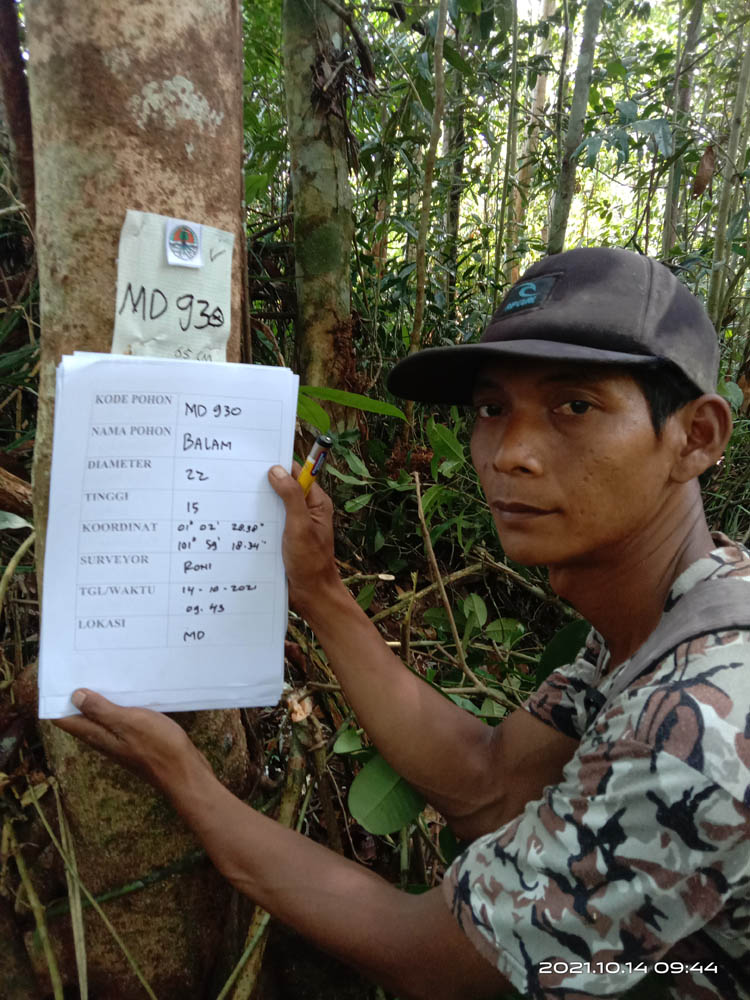 MD 930
65 CM
KODE POHON MD 930
NAMA POHON BALAM
DIAMETER 22
TINGGI 15
KOORDINAT 01° 02' 28.38"
101° 59' 18.34"
SURVEYOR RONI
TGL/WAKTU 14-10-2021
09.43
LOKASI MD
RIP CURL
2021.10.14 09:44